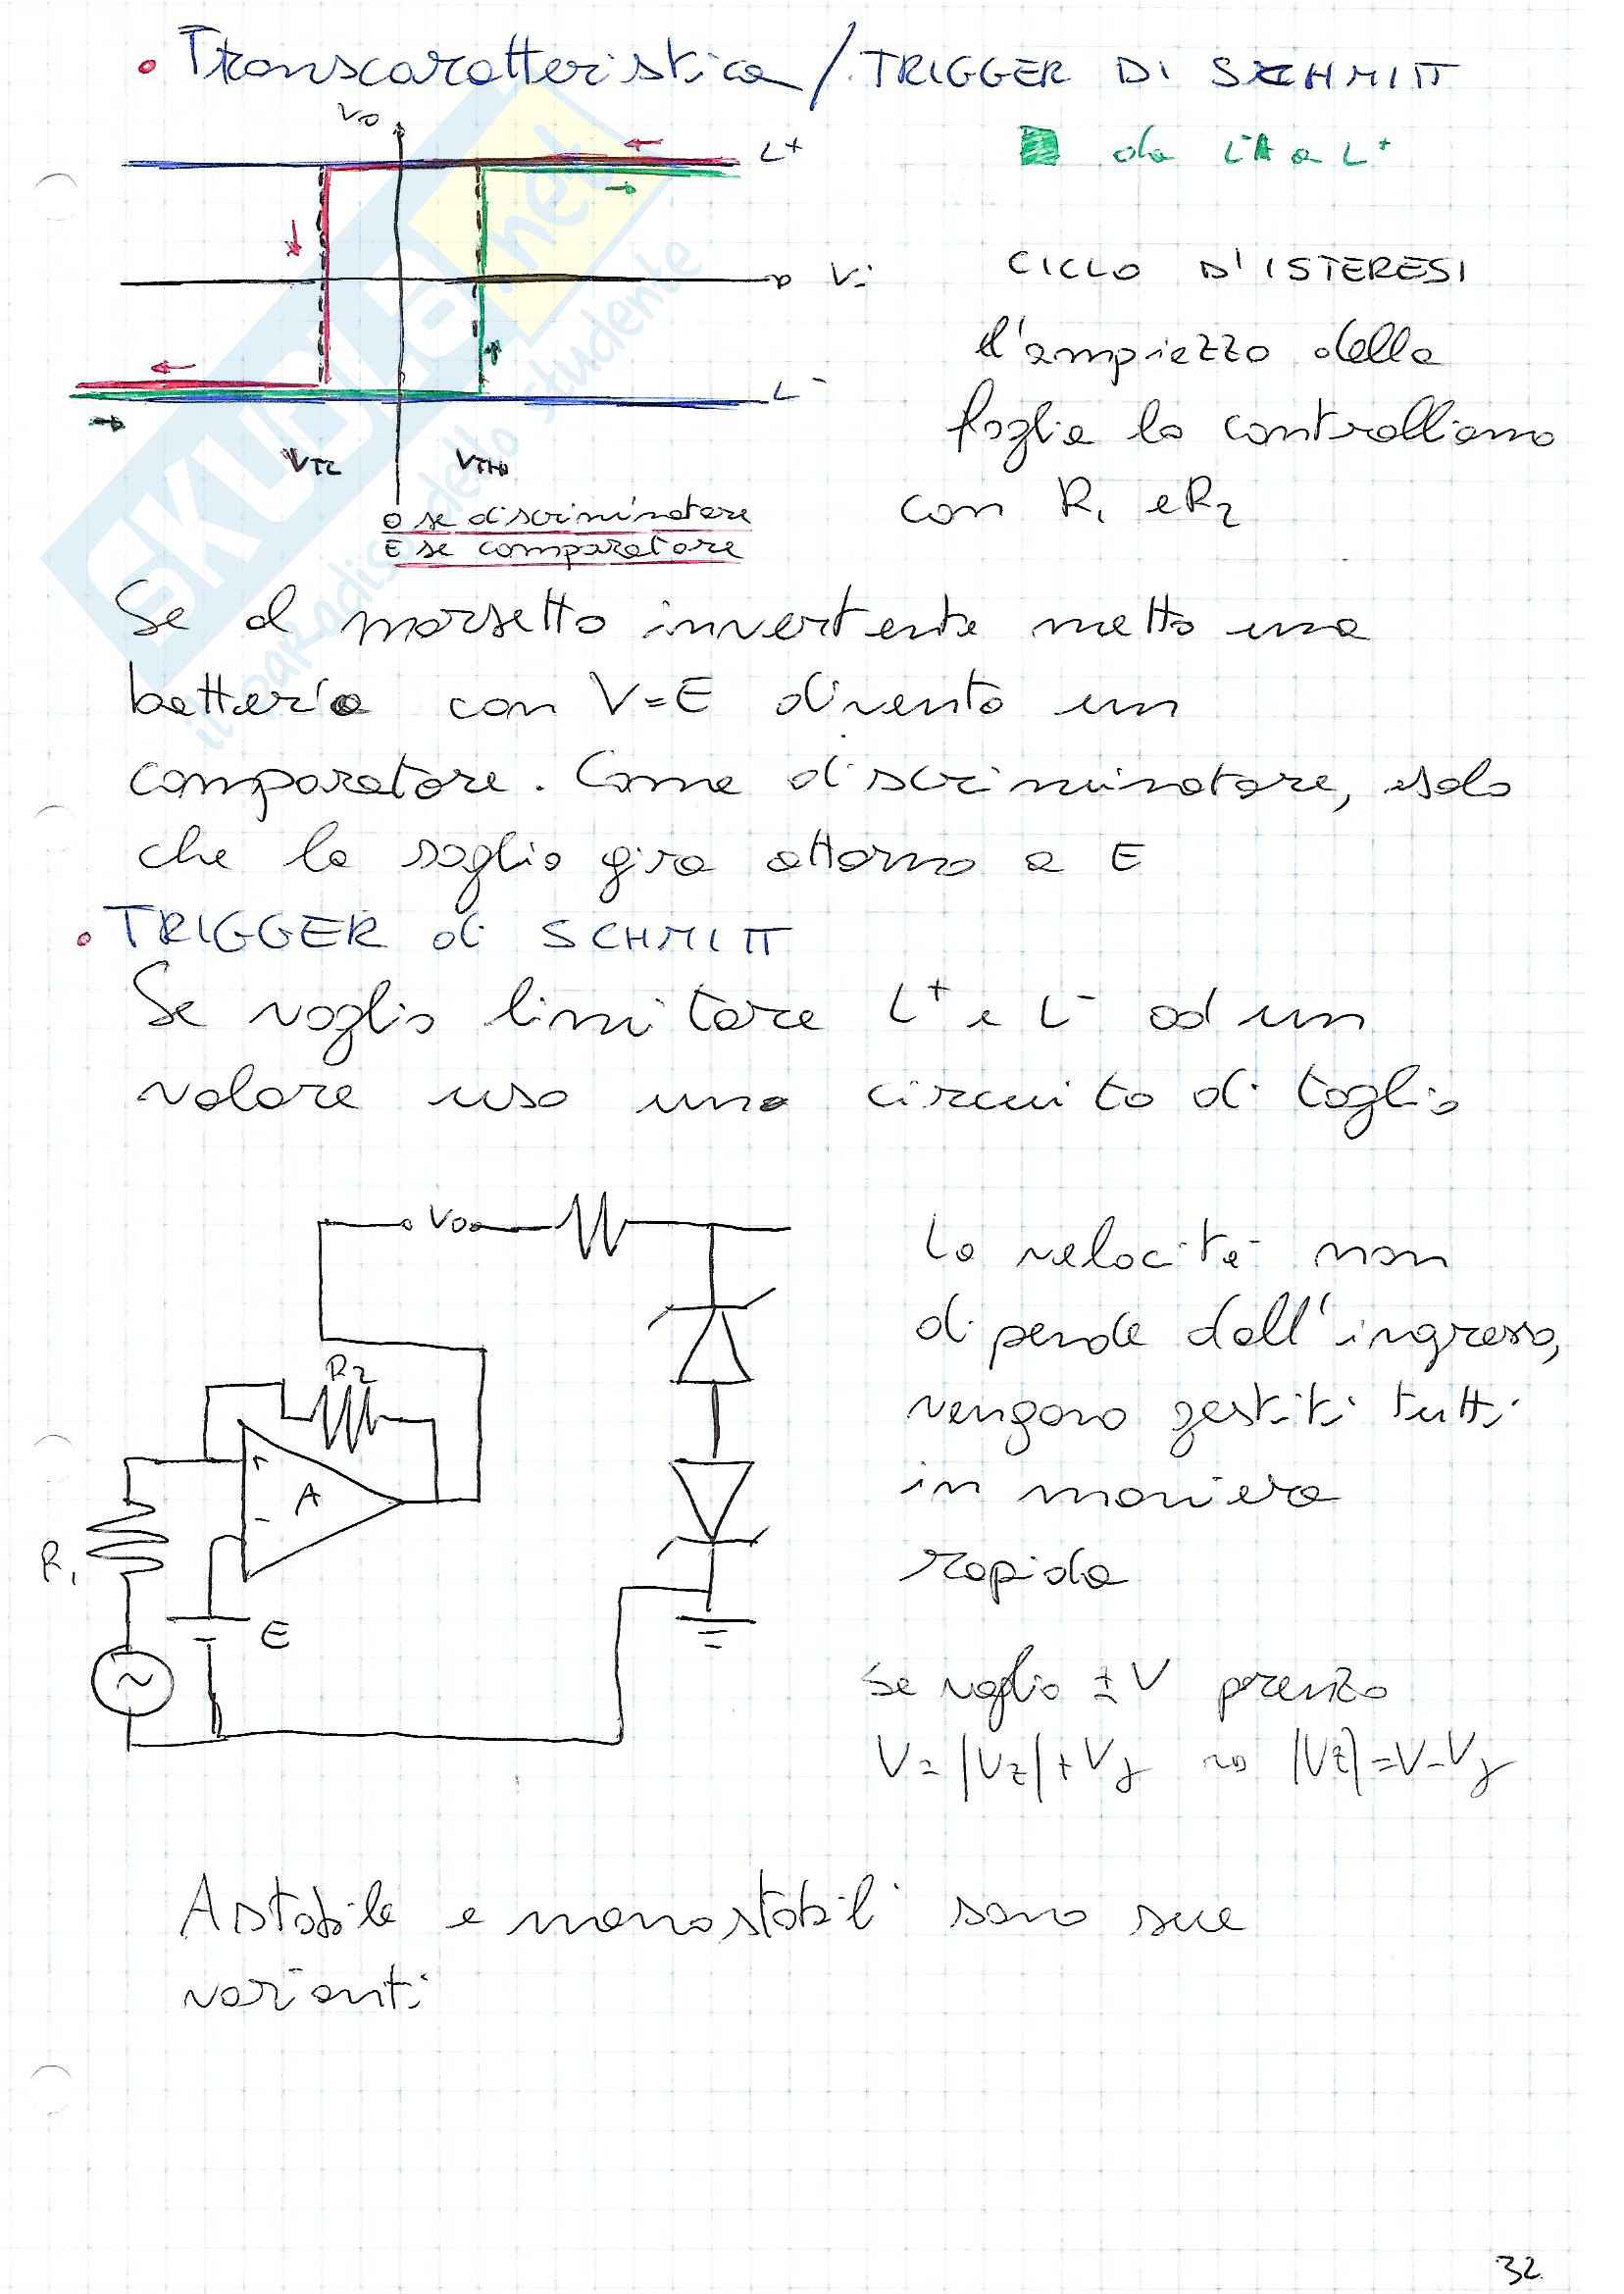 • Transcaratteristica / TRIGGER DI SCHMITT
Vo
L+
da L- a L+
Vi
CICLO D'ISTERESI
l'ampiezza della
foglia la controlliamo
con R1 e R2
L-
VTL
VTH
0 se discriminatore
E se comparatore
Se al morsetto invertente metto una
batteria con V=E divento un
comparatore. Come discriminatore, solo
che la soglia gira attorno a E
• TRIGGER di SCHMITT
Se voglio limitare L+ e L- ad un
valore uso una circuito di taglio
Vo
R2
A
+
-
R1
E
~
La velocità non
dipende dall'ingresso,
vengono gestiti tutti
in maniera
rapida
Se voglio ±V prendo
V=|Vz|+Vγ ⇝ |Vz|=V-Vγ
Astabile e monostabil sono sue
varianti
32
SKUOLA.net
il paradiso dello studente